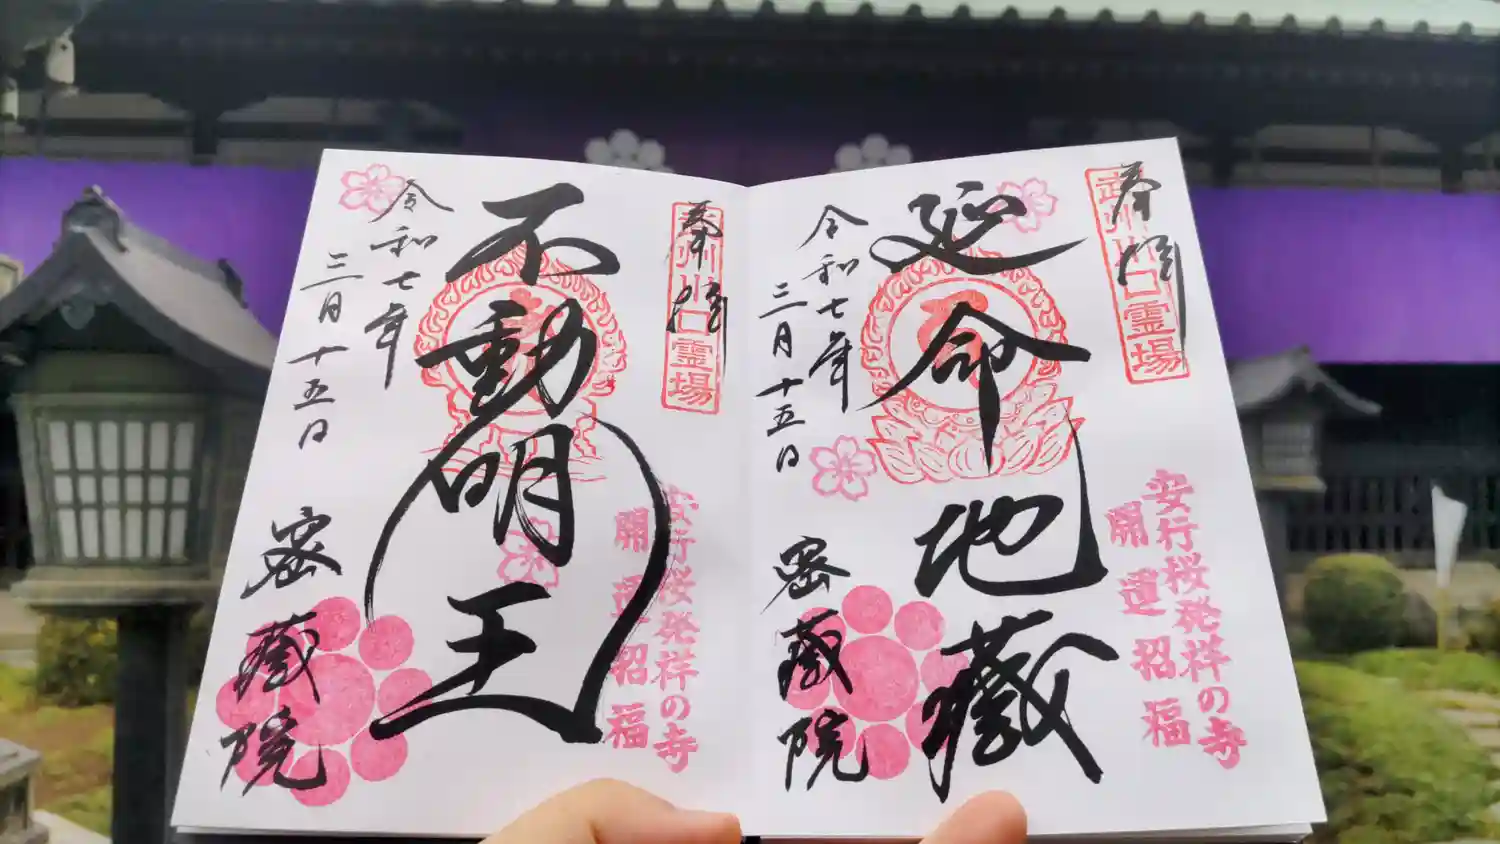 奉拝
武州川口霊場
延命地蔵
安行桜発祥の寺
開運招福
令和七年
三月十五日
密蔵院
奉拝
武州川口霊場
不動明王
安行桜発祥の寺
開運招福
令和七年
三月十五日
密蔵院